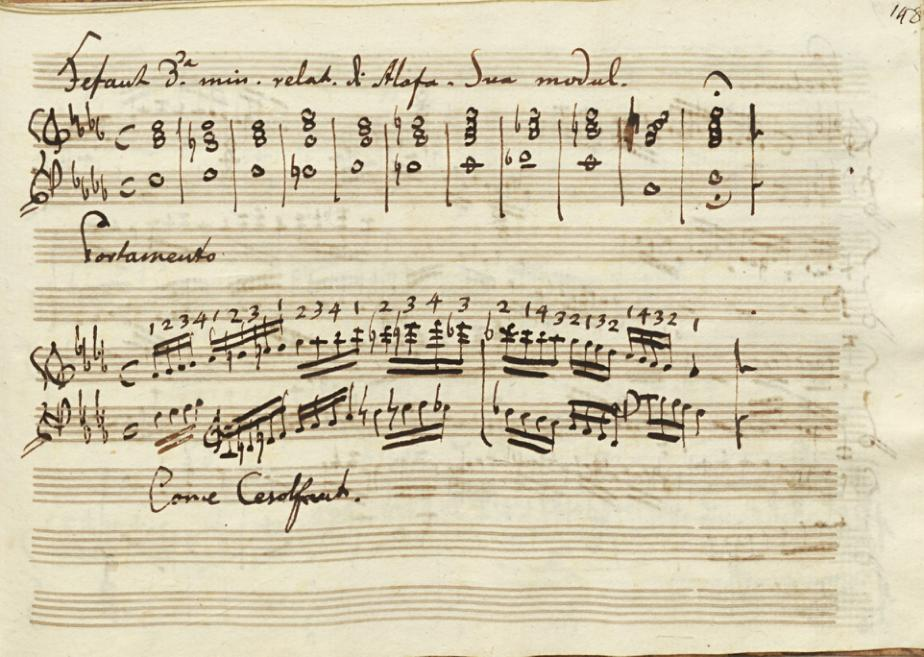 148
Fefaut 3.ª min. relat. di Alafa. Sua modul.
Portamento
1 2 3 4 1 2 3 1 2 3 4 1 2 3 4 3 2 1 4 3 2 1 3 2 1 4 3 2 1
Come Cesolfaut.